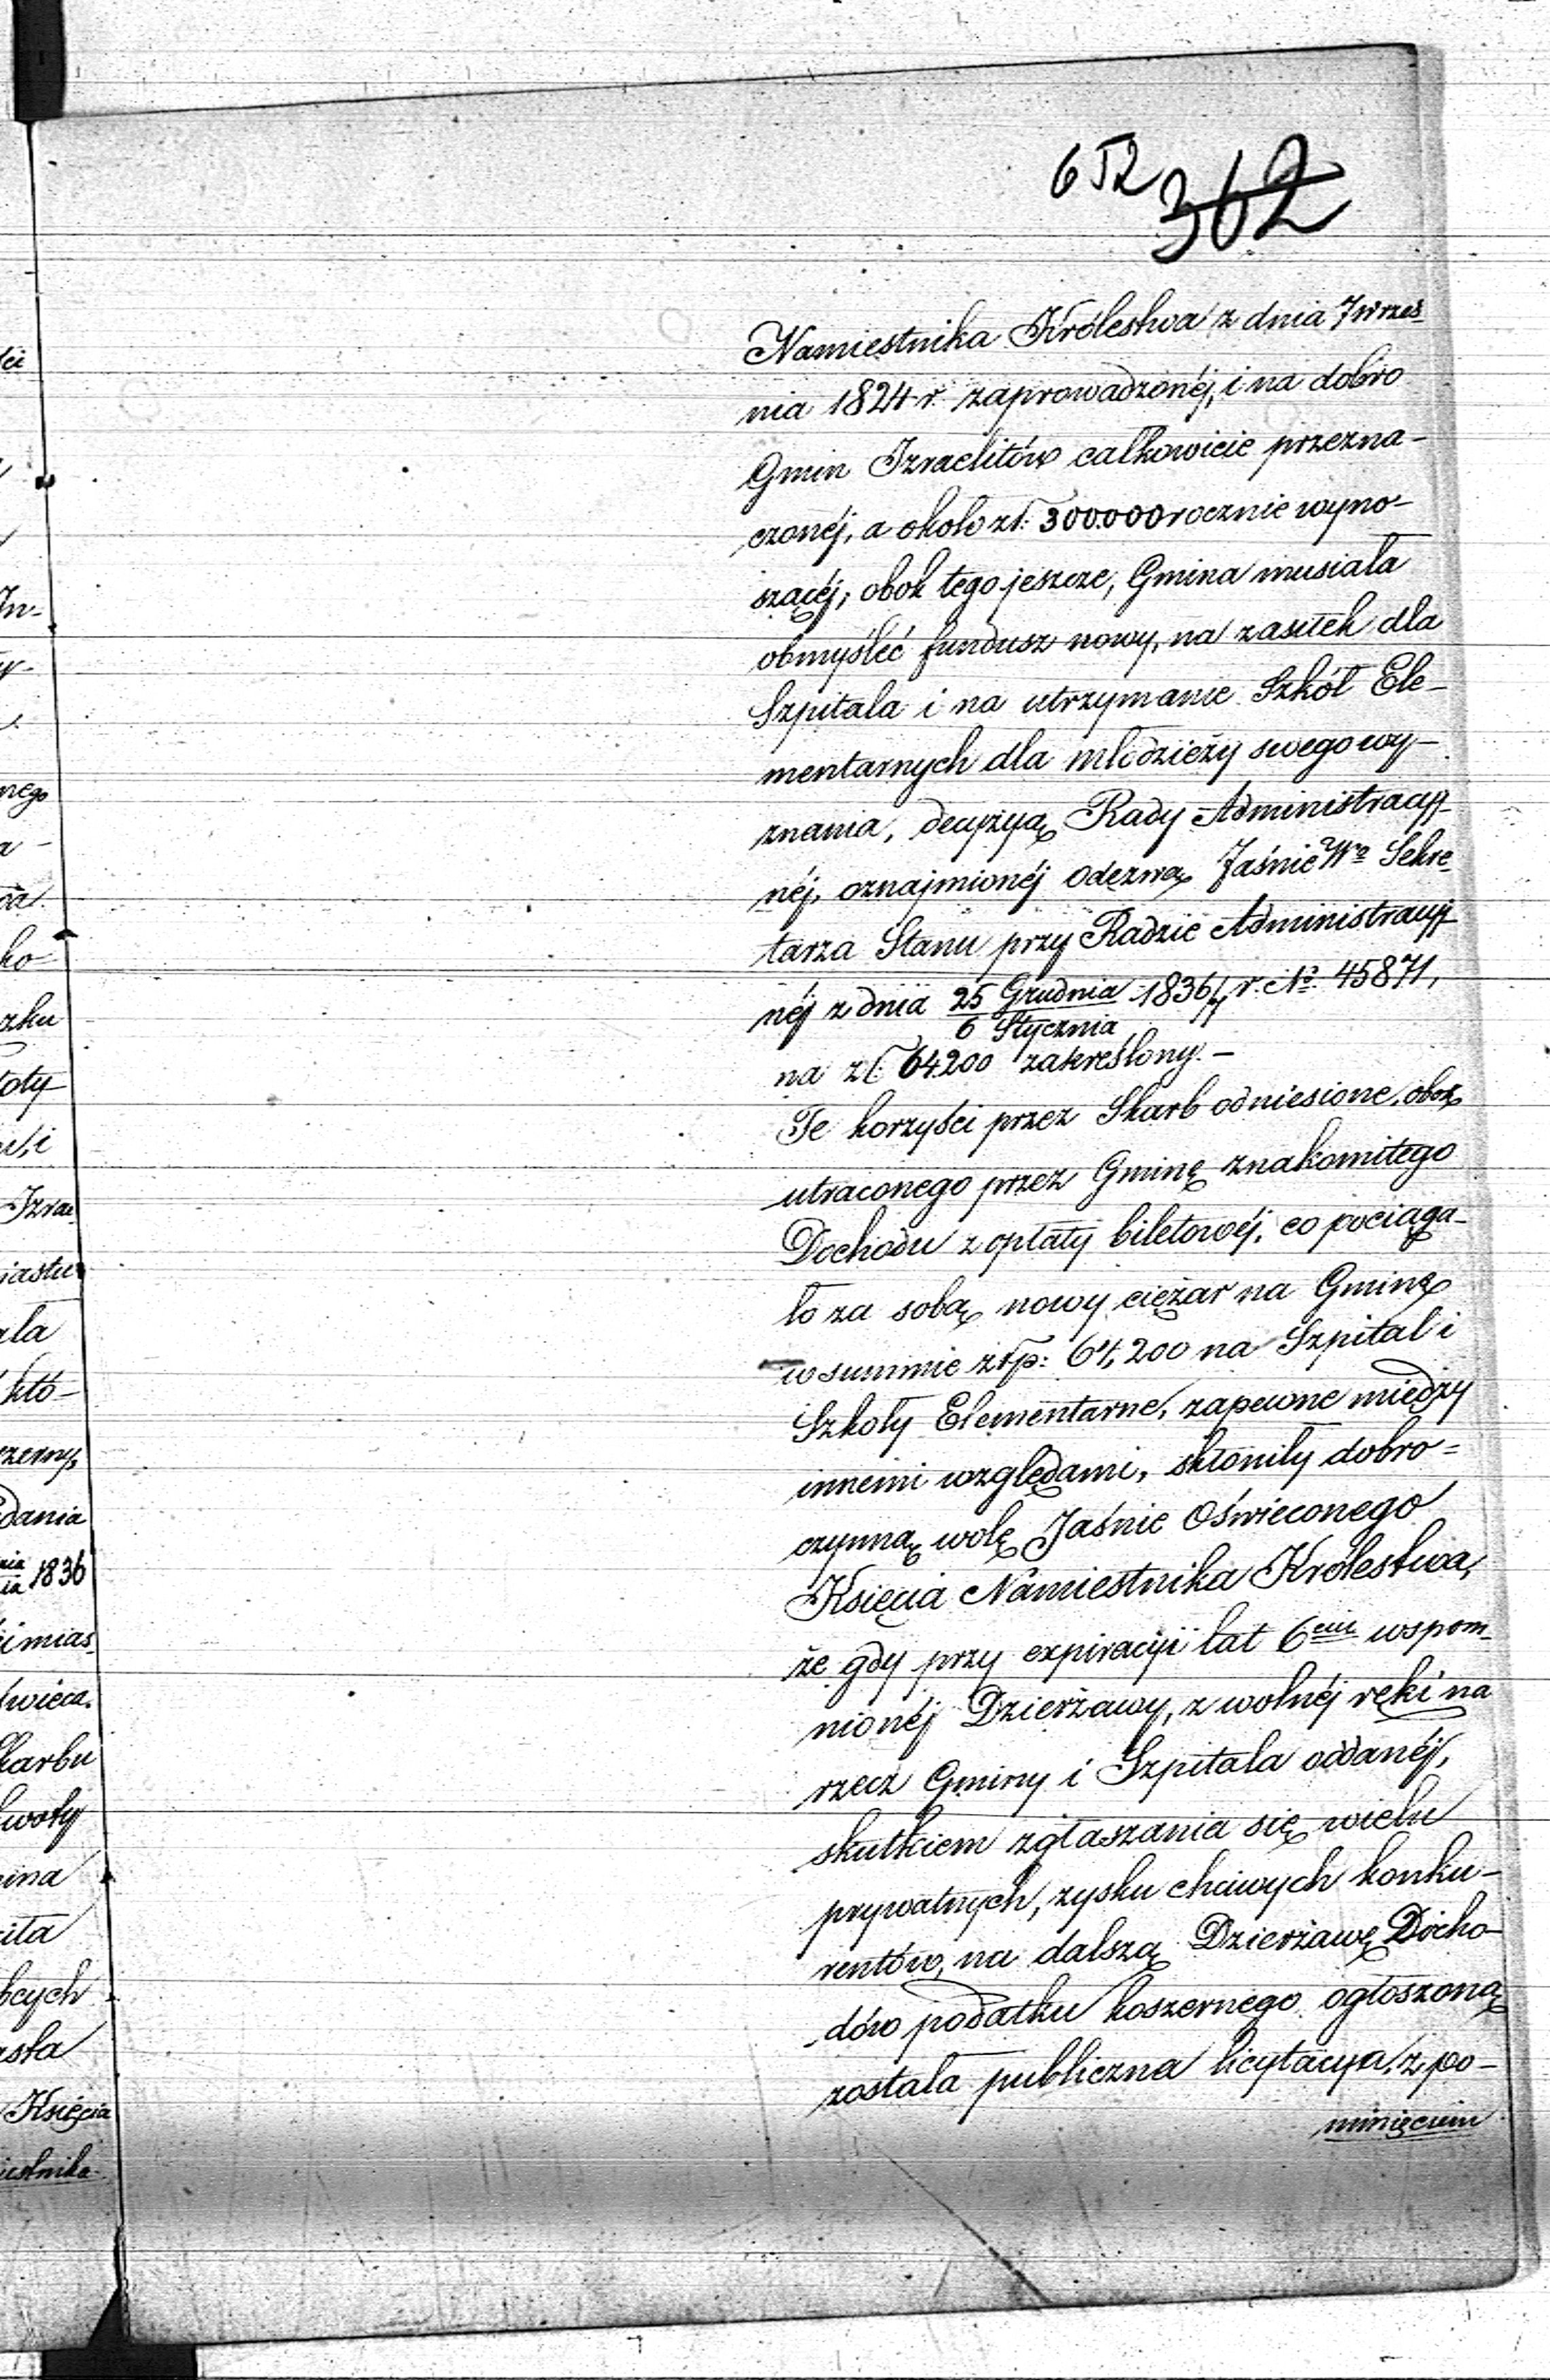 652
362
Namiestnika Królestwa z dnia 7 Wrześ-
nia 1824 r. zaprowadzonéj, i na dobro
Gmin Izraelitów całkowicie przezna-
czonéj, a około zł: 300.000 rocznie wyno-
szącéj; obok tego jeszcze, Gmina musiała
obmyśléć fundusz nowy, na zasiłek dla
Szpitala i na utrzymanie Szkół Ele-
mentarnych dla młodzieży swego wy-
znania, decyzyą Rady Administracyj-
néj, oznajmionéj odezwą Jaśnie Wo Sekre-
tarza Stanu przy Radzie Administracyj-
néj z dnia 25 Grudnia / 6 Stycznia 1836/7 r. No 45871,
na zł: 64200 zakreślony. –
Te korzyści przez Skarb odniesione, obok
utraconego przez Gminę znakomitego
Dochodu z opłaty biletowéj, co pociąga-
ło za sobą nowy ciężar na Gminę
w summie złp: 64,200 na Szpital i
Szkoły Elementarne, zapewne między
innemi względami, skłoniły dobro=
czynną wolę Jaśnie Oświeconego
Księcia Namiestnika Królestwa,
że gdy przy expiracyi lat 6ciu wspom-
nionéj Dzierżawy, z wolnéj ręki na
rzecz Gminy i Szpitala oddanéj,
skutkiem zgłaszania się wielu
prywatnych, zysku chciwych konku-
rentów, na dalszą Dzierżawę Docho-
dów podatku koszernego ogłoszoną
została publiczna licytacya, z po-
minięciem